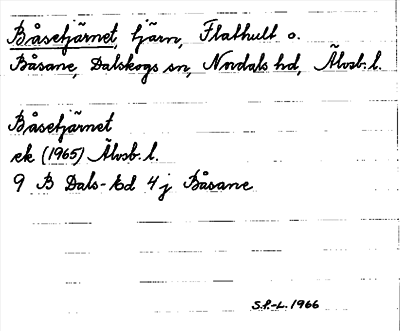 Båsetjärnet, tjärn, Flathult o.
Båsane, Dalskogs sn, Nordals hd, Älvsb. l.
Båsetjärnet
ek (1965) Älvsb. l.
9 B Dals-Ed 4 j Båsane
S.P.-L. 1966